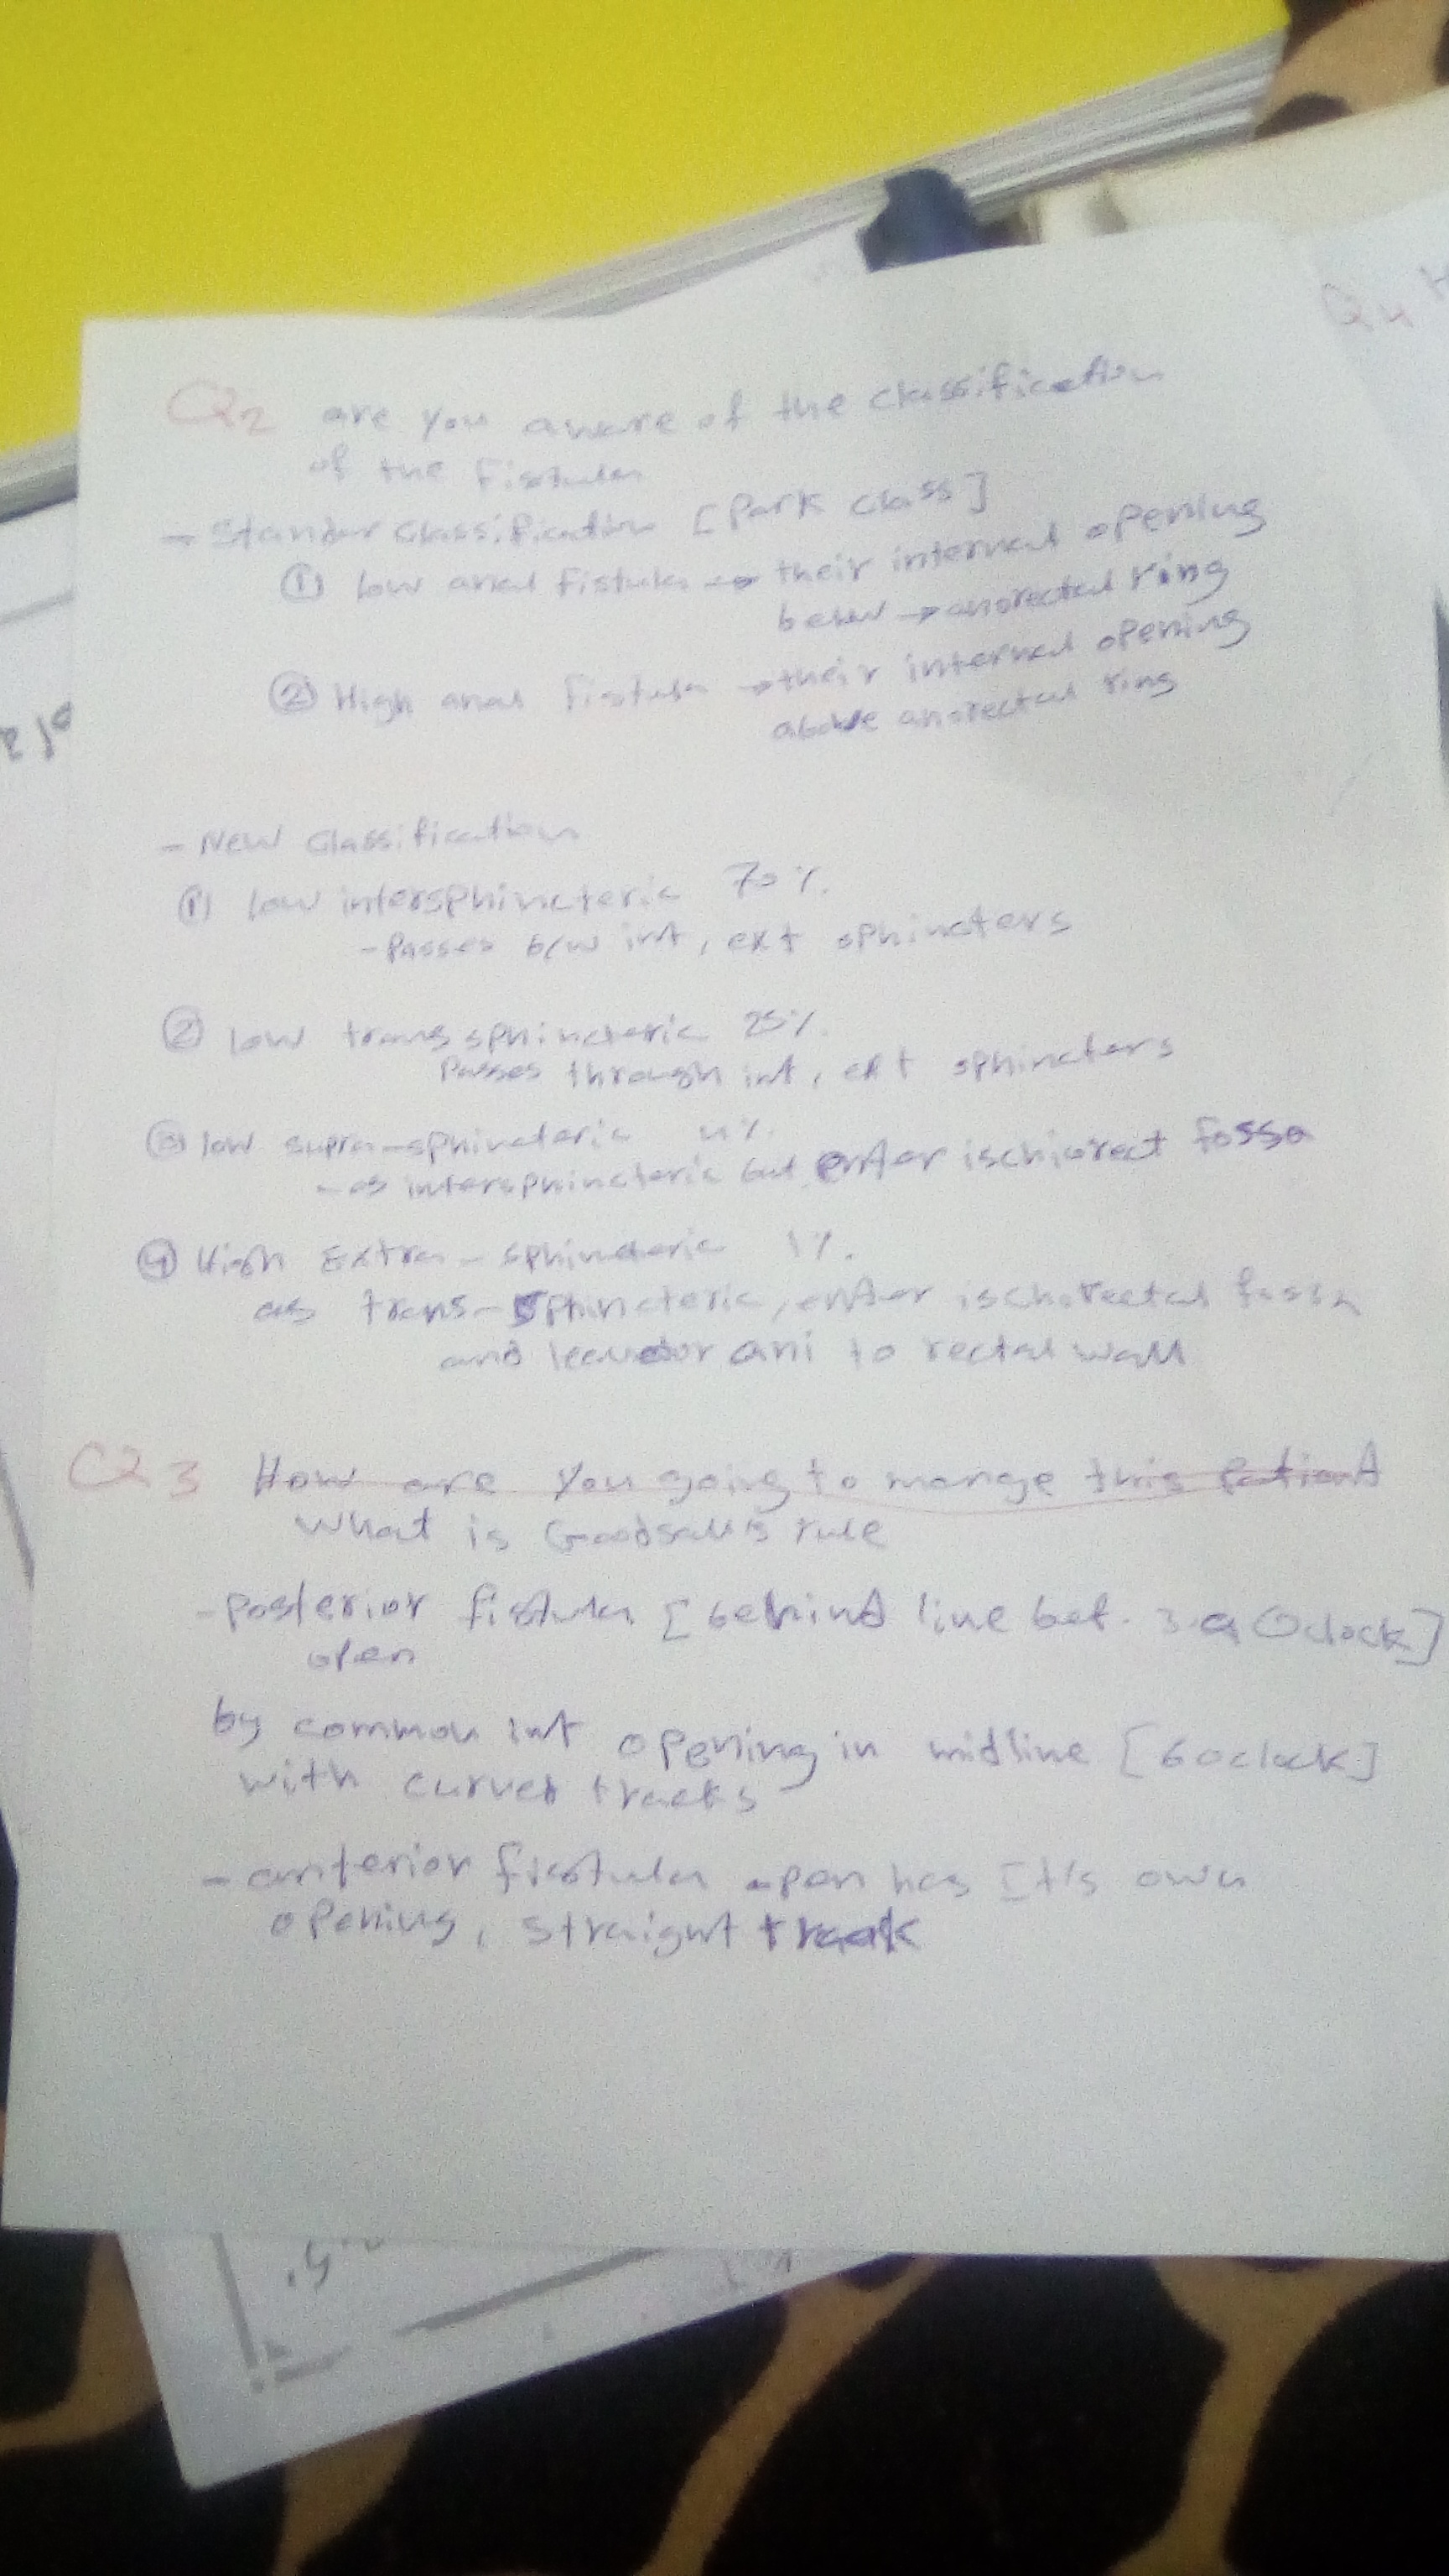 Q2 are you aware of the classification
of the Fistula
- Stander classification [Park class]
① low anal fistula → their internal opening
below → anorectal ring
② High anal fistula → their internal opening
above anorectal ring
- New classification
① low intersphincteric 70%.
- Passes b/w int, ext sphincters
② low trans sphincteric 25%.
Passes through int, ext sphincters
③ low supra-sphincteric 4%.
- as intersphincteric but enter ischiorect fossa
④ High Extra-sphincteric 1%.
as trans-sphincteric, enter ischiorectal fossa
and levator ani to rectal wall
Q3 How are you going to mange this patient
What is Goodsall's rule
- posterior fistula [behind line bet. 3-9 Oclock]
open
by common int opening in midline [6 oclock]
with curved tracks
- anterior fistula open has It's own
opening, straight track
Q4